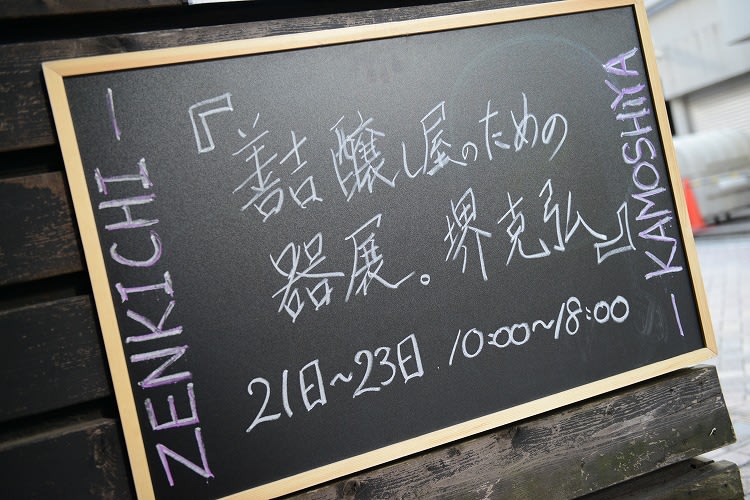 ZENKICHI —
『善吉醸し屋のための
器展。堺克弘』
21日~23日 10:00~18:00
— KAMOSHiYA